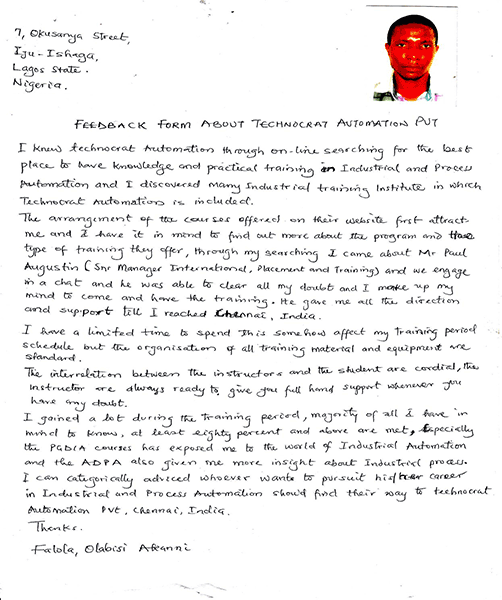 7, Okusanya Street,
Iju-Ishaga,
Lagos State.
Nigeria.
FEEDBACK FORM ABOUT TECHNOCRAT AUTOMATION PVT
I knew technocrat Automation through on-line searching for the best
place to have knowledge and practical training in Industrial and Process
Automation and I discovered many Industrial training Institute in which
Technocrat Automation is included.
The arrangement of the courses offered on their website first attract
me and I have it in mind to find out more about the program and
type of training they offer, through my searching I came about Mr Paul
Augustin (Snr Manager International, Placement and Training) and we engage
in a chat and he was able to clear all my doubt and I make up my
mind to come and have the training. He gave me all the direction
and support till I reached Chennai, India.
I have a limited time to spend this somehow affect my training period
schedule but the organisation of all training material and equipment are
standard.
The interrelation between the instructors and the student are cordial, the
instructor are always ready to give you full hand support whenever you
have any doubt.
I gained a lot during the training period, majority of all I have in
mind to know, at least eighty percent and above are met, Especially
the PGDIA courses has exposed me to the world of Industrial Automation
and the ADPA also given me more insight about Industrial process.
I can categorically adviced whoever wants to pursuit his/her career
in Industrial and Process Automation should find their way to technocrat
Automation Pvt, Chennai, India.
Thanks.
Falola, Olabisi Afeanni